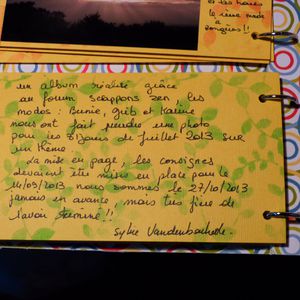 et les hanes
le reine made
a
conques !!
un album réalisé grâce
au forum scrappons zen, les
modos : Bunie, grib et Karine
nous ont fait prendre une photo
pour les 8 jours de juillet 2013 sur
un thème.
La mise en page, les consignes
devaient être mise en place pour le
14/09/2013 nous sommes le 27/10/2013
jamais en avance, mais très fière de
l'avoir terminé !!
Sylvie